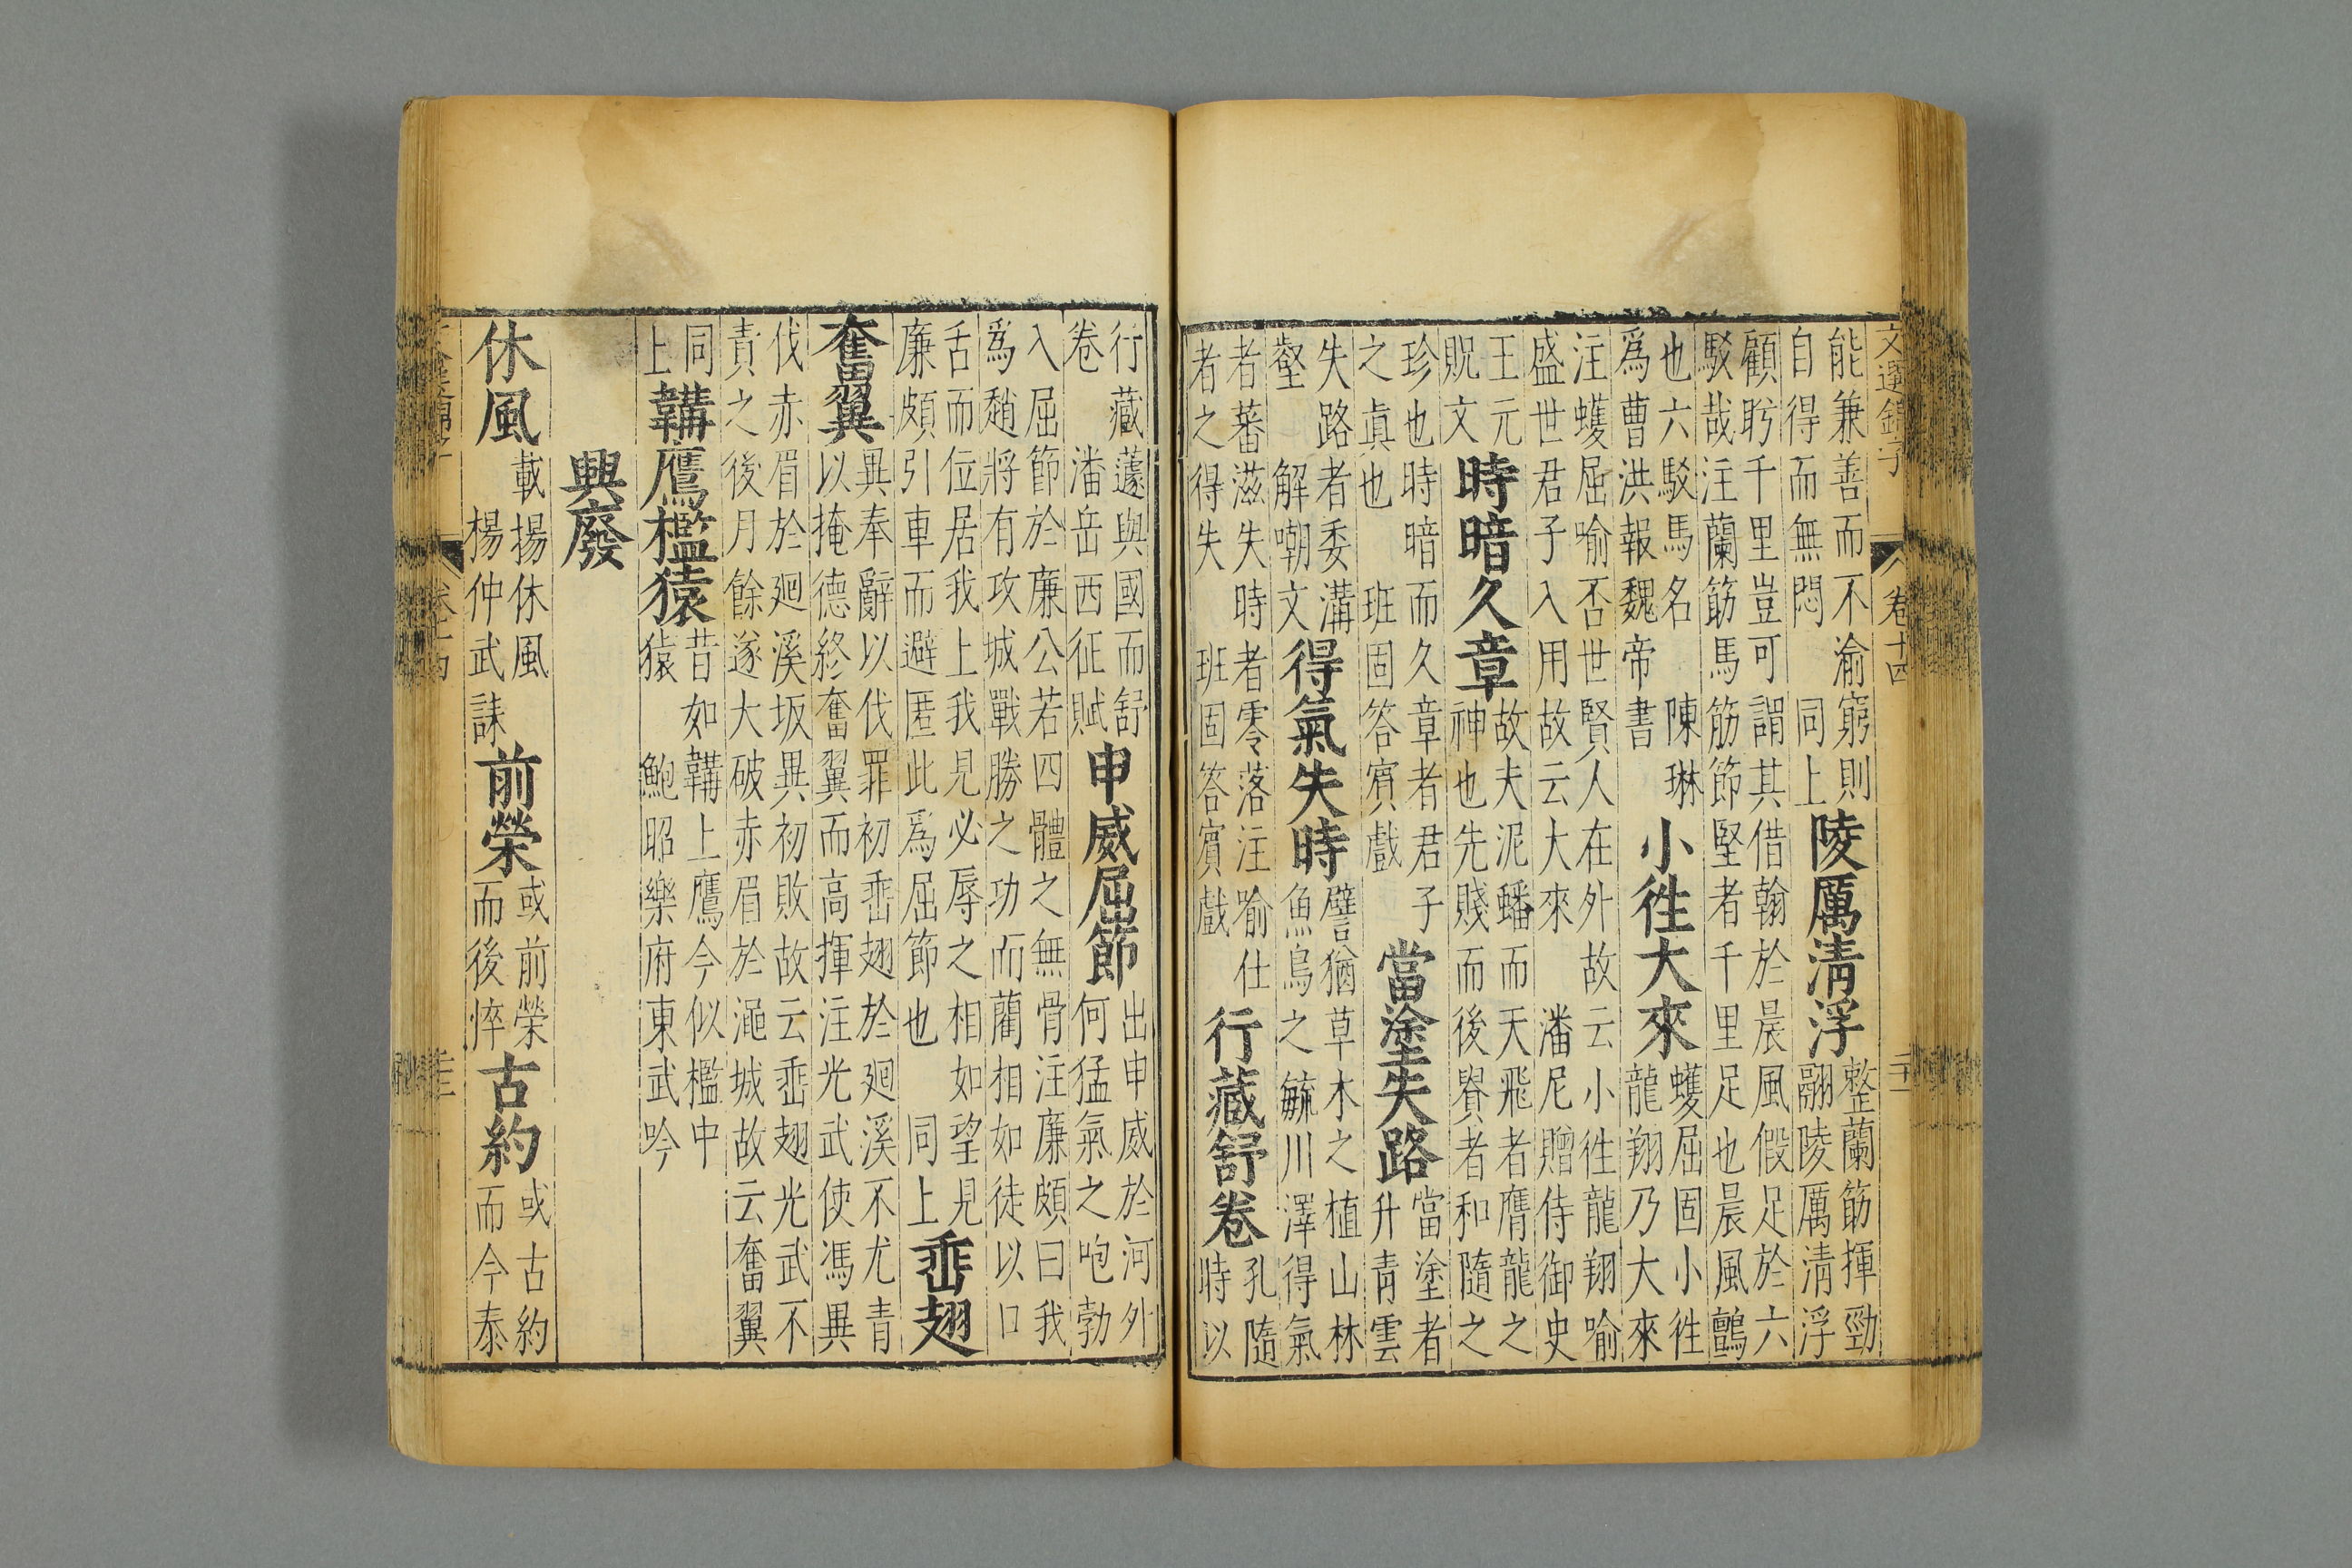 文選錦字 卷十四
能兼善而不渝窮則
自得而無悶 同上
陵厲清浮
整蘭筋揮勁
翮陵厲清浮
顧盻千里豈可謂其借翰於晨風假足於六
駁哉注蘭筋馬筋節堅者千里足也晨風鸇
也六駁馬名 陳琳
爲曹洪報魏帝書
小徃大來
蠖屈固小徃
龍翔乃大來
注蠖屈喻否世賢人在外故云小徃龍翔喻
盛世君子入用故云大來 潘尼贈侍御史
王元
貺文
時暗久章
故夫泥蟠而天飛者膺龍之
神也先賤而後貴者和隨之
珍也時暗而久章者君子
之真也 班固答賓戲
當塗失路
當塗者
升青雲
失路者委溝
壑 解嘲文
得氣失時
譬猶草木之植山林
魚鳥之毓川澤得氣
者蕃滋失時者零落注喻仕
者之得失 班固答賓戲
行藏舒卷
孔隨
時以
行藏蘧與國而舒
卷 潘岳西征賦
申威屈節
出申威於河外
何猛氣之咆勃
入屈節於廉公若四體之無骨注廉頗曰我
爲趙將有攻城戰勝之功而藺相如徒以口
舌而位居我上我見必辱之相如望見
廉頗引車而避匿此爲屈節也 同上
垂翅
奮翼
異奉辭以伐罪初垂翅於廻溪不尤青
以掩德終奮翼而高揮注光武使馮異
伐赤眉於廻溪坂異初敗故云垂翅光武不
責之後月餘遂大破赤眉於澠城故云奮翼
同
上
韝鷹檻猿
昔如韝上鷹今似檻中
猿 鮑昭樂府東武吟
興廢
休風
載揚休風
楊仲武誄
前榮
或前榮
而後悴
古約
或古約
而今泰